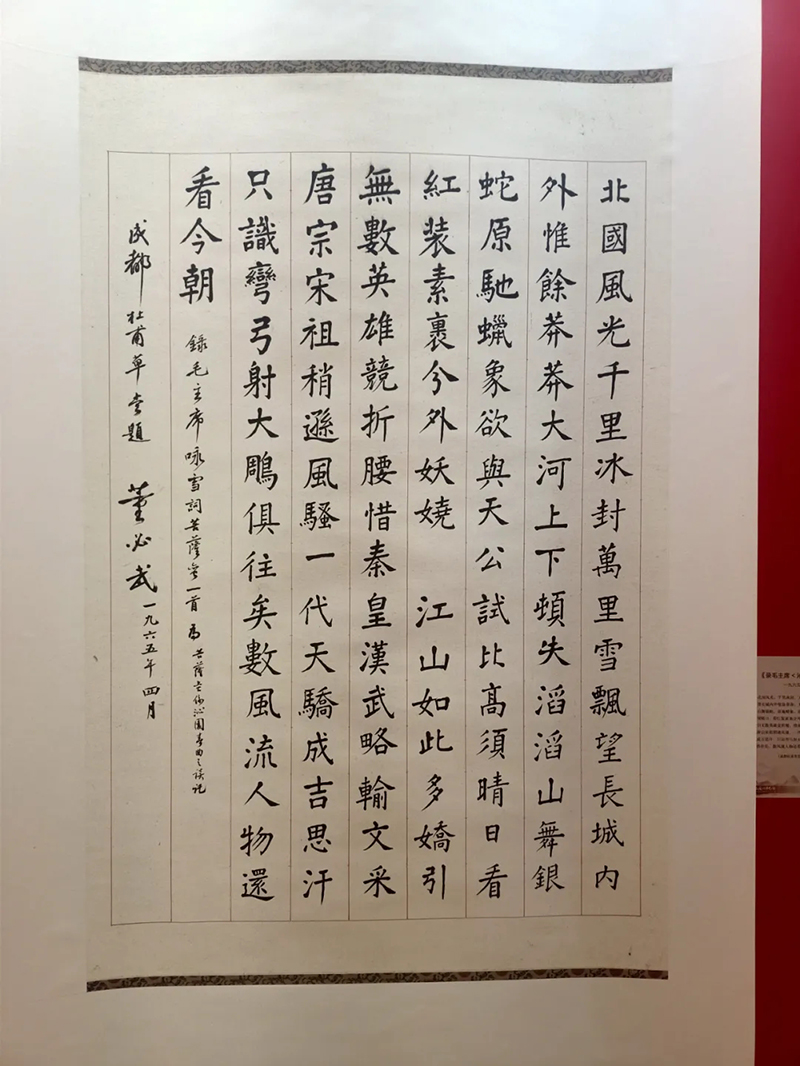 北國風光千里冰封萬里雪飄望長城内
外惟餘莽莽大河上下頓失滔滔山舞銀
蛇原馳蠟象欲與天公試比高須晴日看
紅装素裹分外妖嬈 江山如此多嬌引
無數英雄競折腰惜秦皇漢武略輸文采
唐宗宋祖稍遜風騷一代天驕成吉思汗
只識彎弓射大鵰俱往矣數風流人物還
看今朝 錄毛主席咏雪詞菩薩蛮一首 菩薩蛮係沁園春曲之誤記
成都杜甫草堂題 董必武 一九六五年四月
《录毛主席